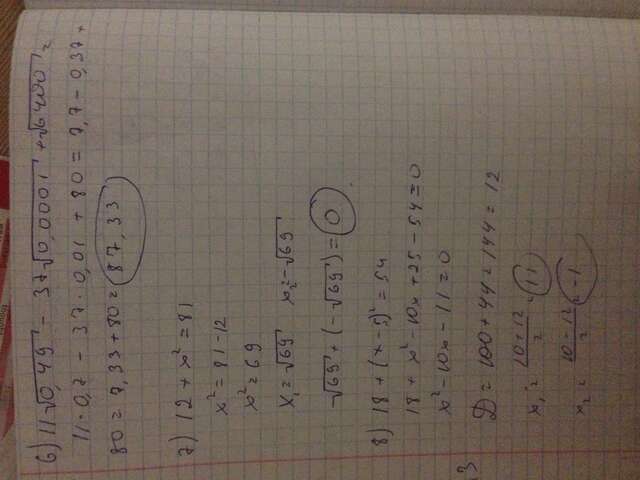 6) 11√0,49 - 37√0,0001 + √6400 =
11·0,7 - 37·0,01 + 80 = 7,7 - 0,37 +
80 = 7,33 + 80 = 87,33
7) 12 + x² = 81
x² = 81 - 12
x² = 69
x₁ = √69 x₂ = -√69
√69 + (-√69) = 0
8) 18 + (x - 5)² = 54
18 + x² - 10x + 25 - 54 = 0
x² - 10x - 11 = 0
D = 100 + 44 = 144 = 12
x₁ = (10+12)/2 = 11
x₂ = (10-12)/2 = -1